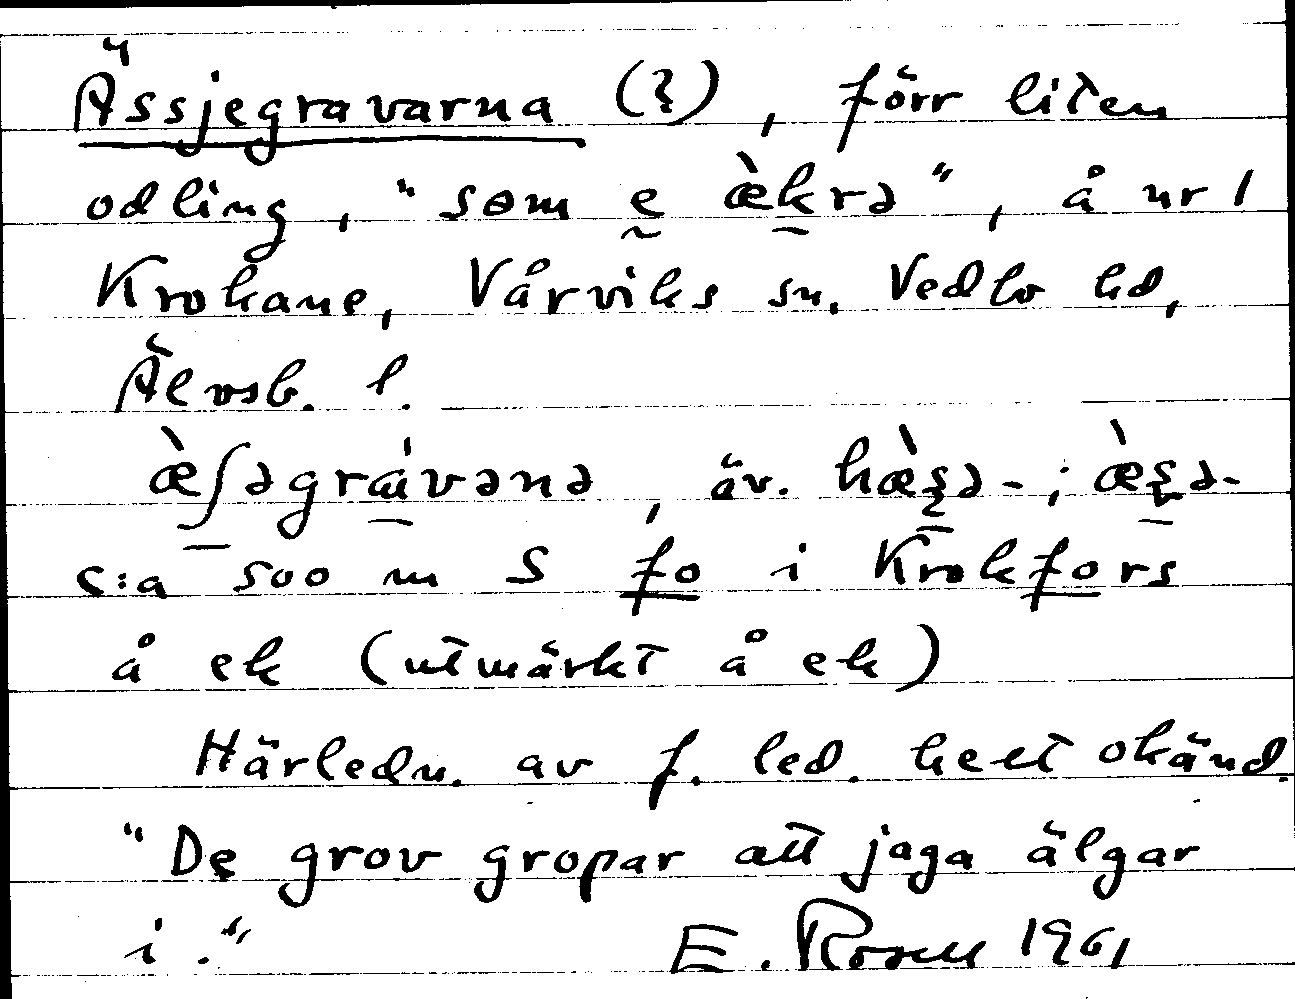 Ässjegravarna (?), förr liten
odling, "som e̱ æ̀krə", å nr 1
Krokane, Vårviks sn. Vedbo hd,
Älvsb. l.
æ̀ʃəgrávənə, äv. hæ̀şə-; æ̀şə-
c:a 500 m S fo i Krokfors
å ek (utmärkt å ek)
Härledn. av f. led. helt okänd.
"De grov gropar att jaga älgar
i." E. Rosell 1961